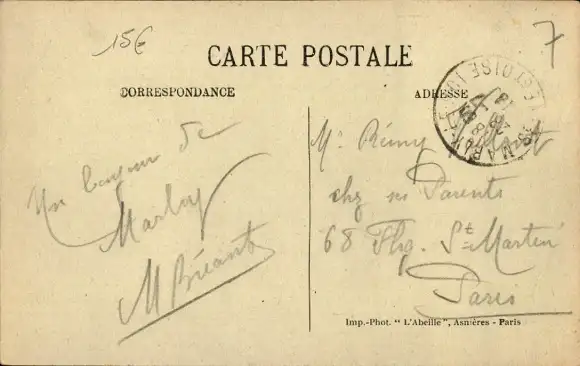 15€
7
CARTE POSTALE
CORRESPONDANCE
ADRESSE
Un bonjour de
Marly
M Briant
Mr Rémy
chez ses Parents
68 Fbg. St-Martin
Paris
Imp.-Phot. " L'Abeille ", Asnières - Paris